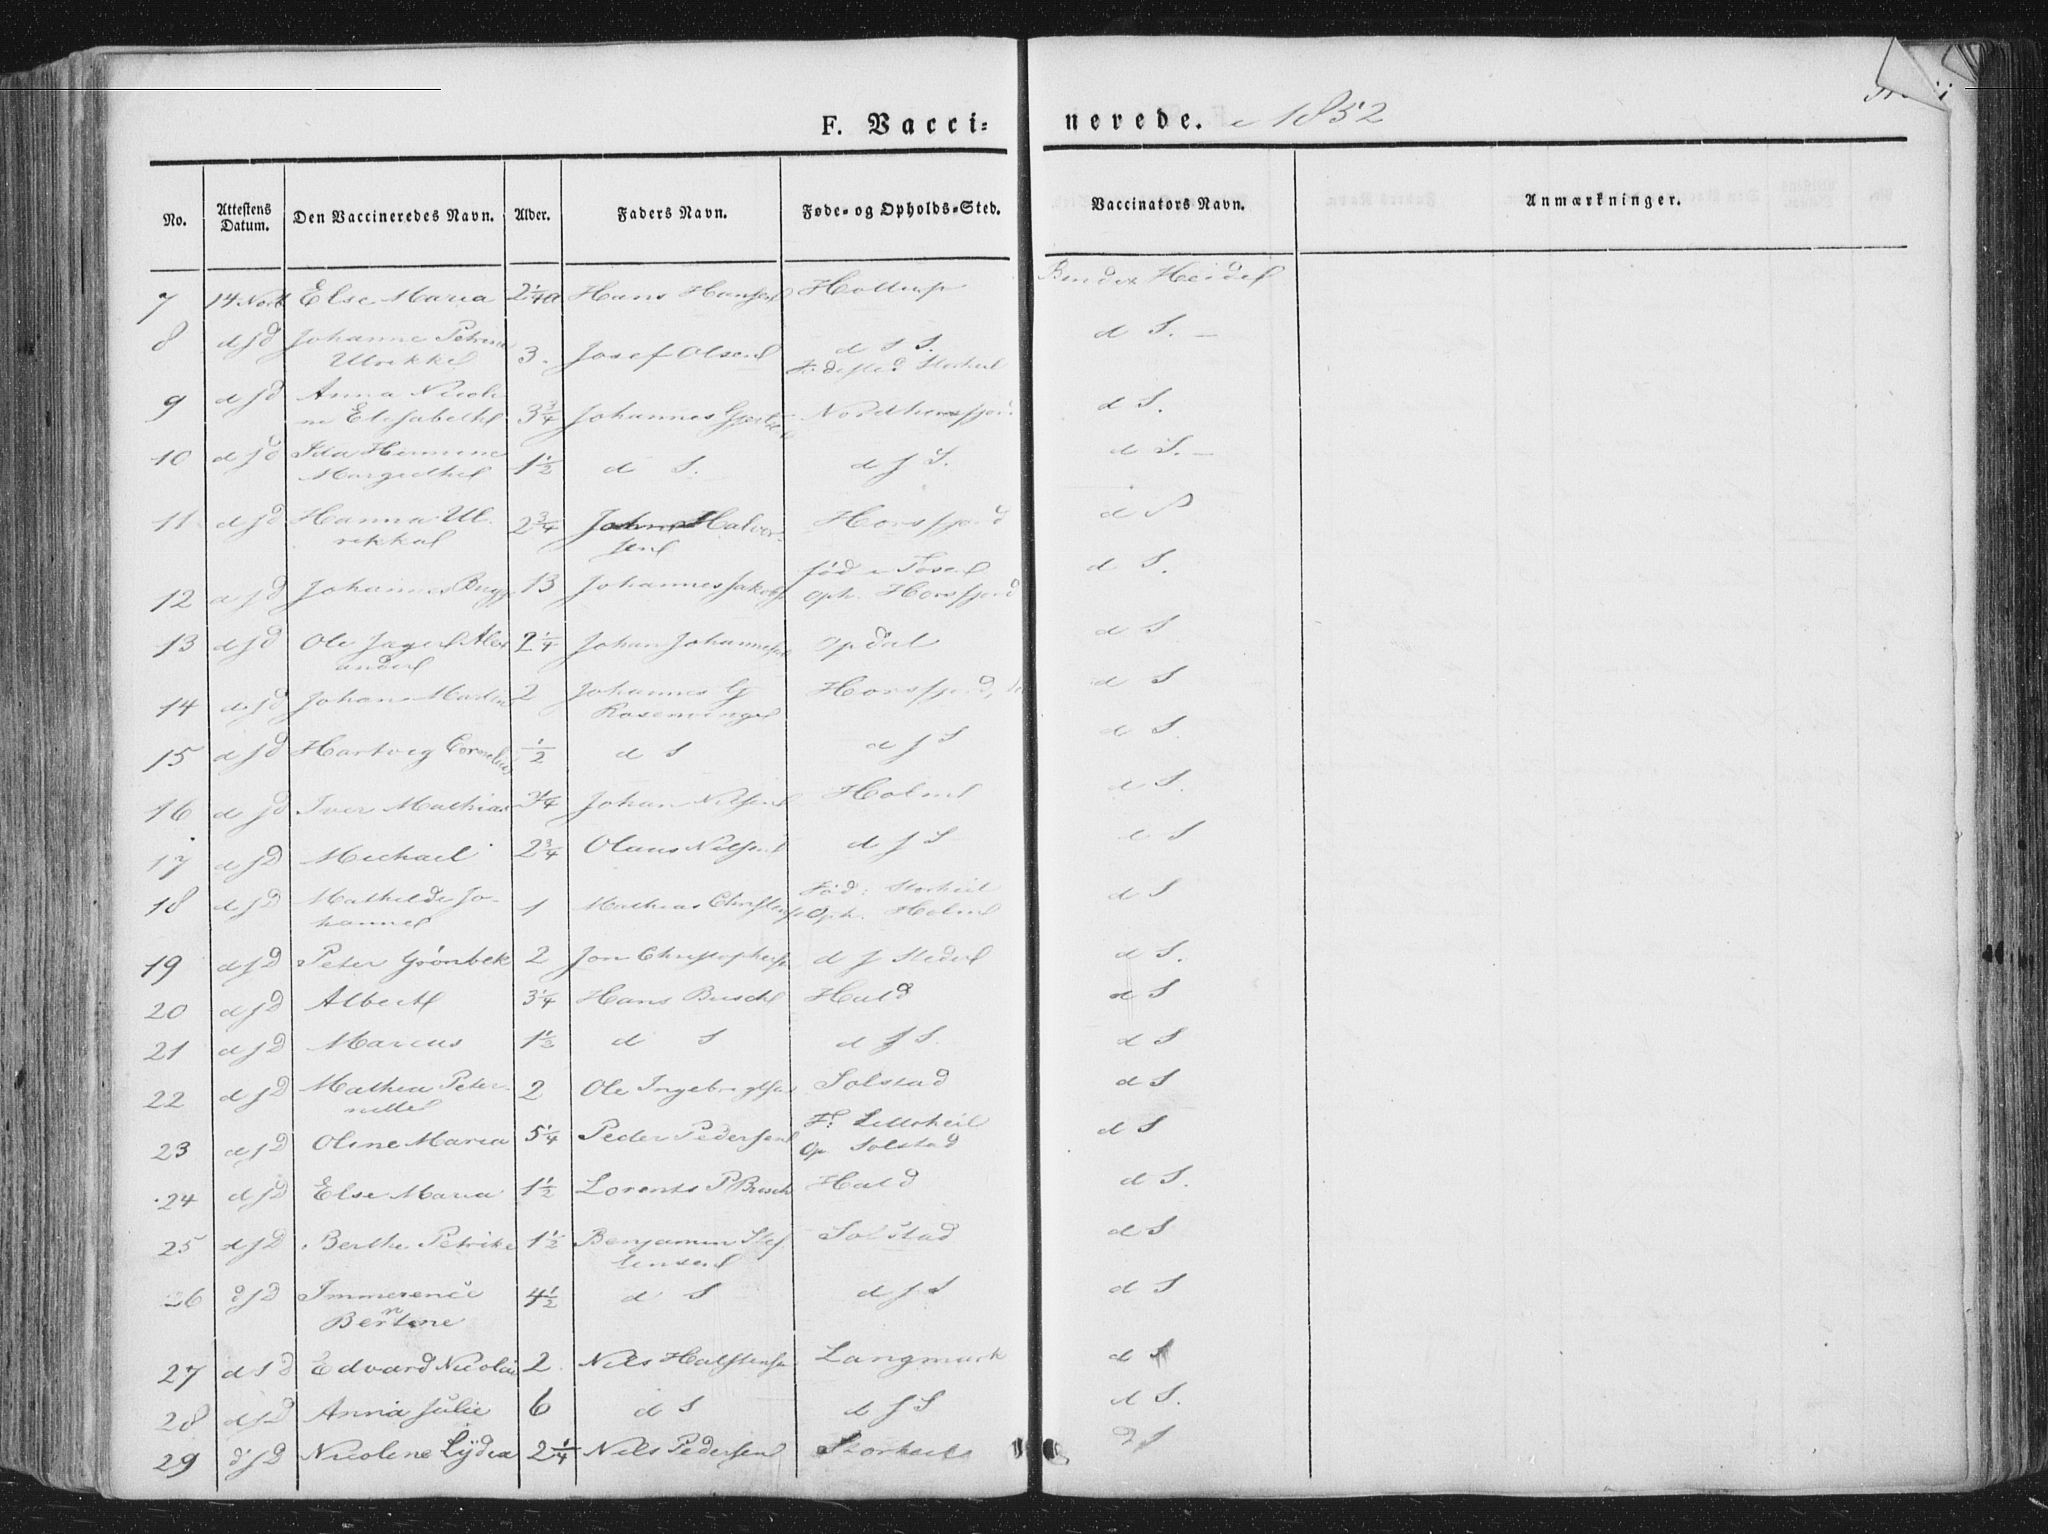 F. Vacci= nerede. 1852
No. Attestens Datum. Den Vaccineredes Navn. Alder. Faders Navn. Føde- og Opholds-Sted. Vaccinators Navn. Anmærkninger.
7 14 Else Maria 2 1/4 Hans Hansen Holtrup Heidel
8 d j d Johanne Petrine Ulrikke 3 Josef Olsen d S. d S.
9 d j d Anna Nicoli
ne Elisabethe 3 3/4 Johannes d S.
10 d j d Ida Margrethe 1 1/2 d S. d j S. d S.
11 d j d Hanna Ul
rikka 2 3/4 Halvor
sen Horsfjord d S
12 d j d Johannes 13 Johannes Jakobs. født i
Oph. Horsfjord d S.
13 d j d Ole Jager Alex
ander 2 1/4 Johan Johannesen Opdal d S
14 d j d Johan Martin 2 Johannes G
Rosenvinge Horsfjord, d S
15 d j d Hartvig Cornelius 1/2 d S d j S d S.
16 d j d Iver Mathias 3/4 Johan Nilsen Holm d S.
17 d j d Michael 2 3/4 Olaus Nilsen d j S d S
18 d j d Mathilde Jo-
hanne 1 Mathias Christens. Fød: Storheil
Oph. Holm d S
19 d j d Peter Grönbek 2 Jon Christophersen d j Sted d S.
20 d j d Albert 3 1/4 Hans Busch Hald d S
21 d j d Marcus 1 1/2 d S d j S. d S
22 d j d Mathea Peter
nille 2 Ole Ingebrigtsen Solstad d S
23 d j d Oline Maria 5 1/4 Peder Pedersen F. Litleheil
Op. Solstad d S
24 d j d Else Maria 1 1/2 Lorents P Busch Hald d S.
25 d j d Berthe Petrike 1 1/2 Benjamin Stef
fensen Solstad d S
26 d j d Immerencie
Bertine 4 1/2 d S d j S d S
27 d j d Edvard Nicolai 2 Nils Halstensen Langmark d S
28 d j d Anna Julie 6 d S d j S d S.
29 d j d Nicoline Lydia 2 1/4 Nils Pedersen Storheil d S